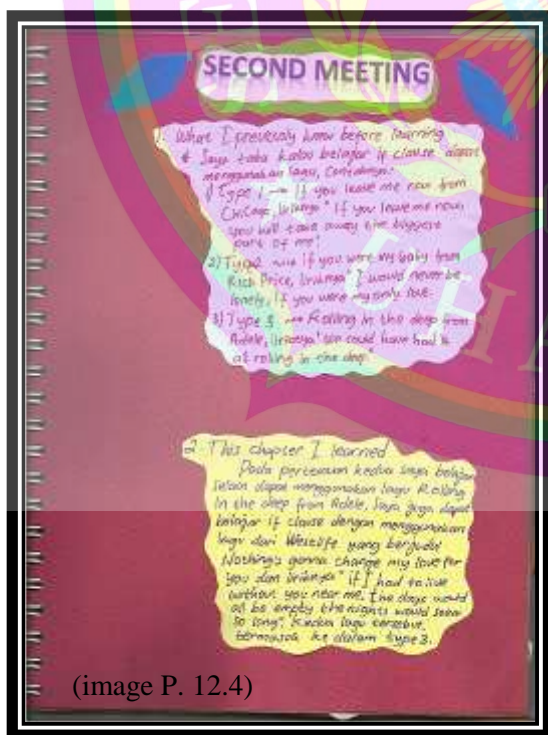 SECOND MEETING
1. What I previously know before learning
* Saya tahu kalau belajar if clause dapat
menggunakan lagu, Contohnya:
1) Type 1 → If you leave me now from
Chicago, liriknya "If you leave me now
you will take away the biggest
part of me"
2) Type 2 → if you were my baby from
Rick Price, liriknya "I would never be
lonely, If you were my only love.
3) Type 3 → Rolling in the deep from
Adele, liriknya "we could have had it
all rolling in the deep"
2. This chapter I learned
Pada pertemuan kedua saya belajar
Selain dapat menggunakan lagu Rolling
In the deep from Adele, Saya juga dapat
belajar if clause dengan menggunakan
lagu dari Westlife yang berjudul
Nothing's gonna change my love for
you dan liriknya "if I had to live
without you near me. the days would
all be empty the nights would seem
so long". Kedua lagu tersebut,
termasuk ke dalam type 3.
(image P. 12.4)